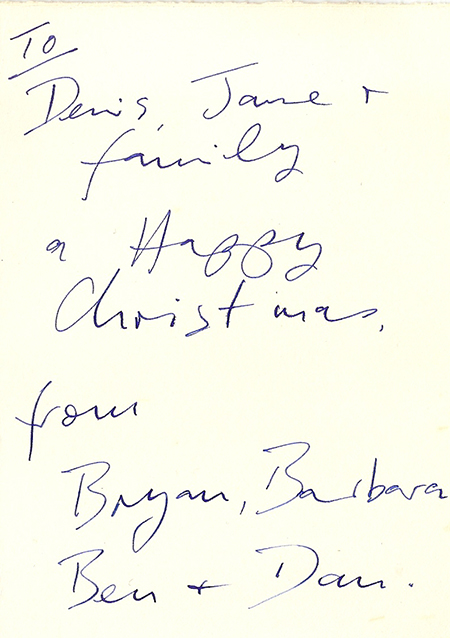 To
Denis, Jane +
family
a Happy
Christmas,
from
Bryan, Barbara
Ben + Dan.